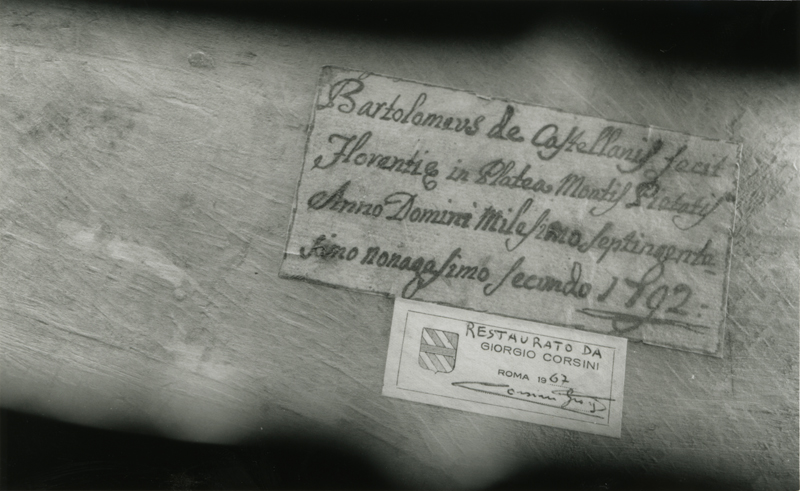 Bartolomeus de Castellanis fecit
Florentiæ in Platea Montis Pietatis
Anno Domini Milesimo septingente
simo nonagesimo secundo 1792:
RESTAURATO DA
GIORGIO CORSINI
ROMA 1967